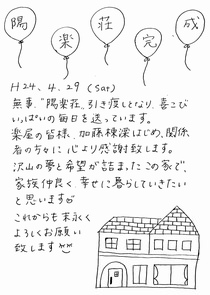 陽楽荘完成
H24.4.29 (sat)
無事"陽楽荘"引き渡しとなり、喜こび
いっぱいの毎日を送っています。
楽屋の皆様、加藤棟梁はじめ、関係
者の方々に心より感謝致します。
沢山の夢と希望が詰まったこの家で、
家族仲良く、幸せに暮らしていきたい
と思います
これからも末永く
よろしくお願い
致します